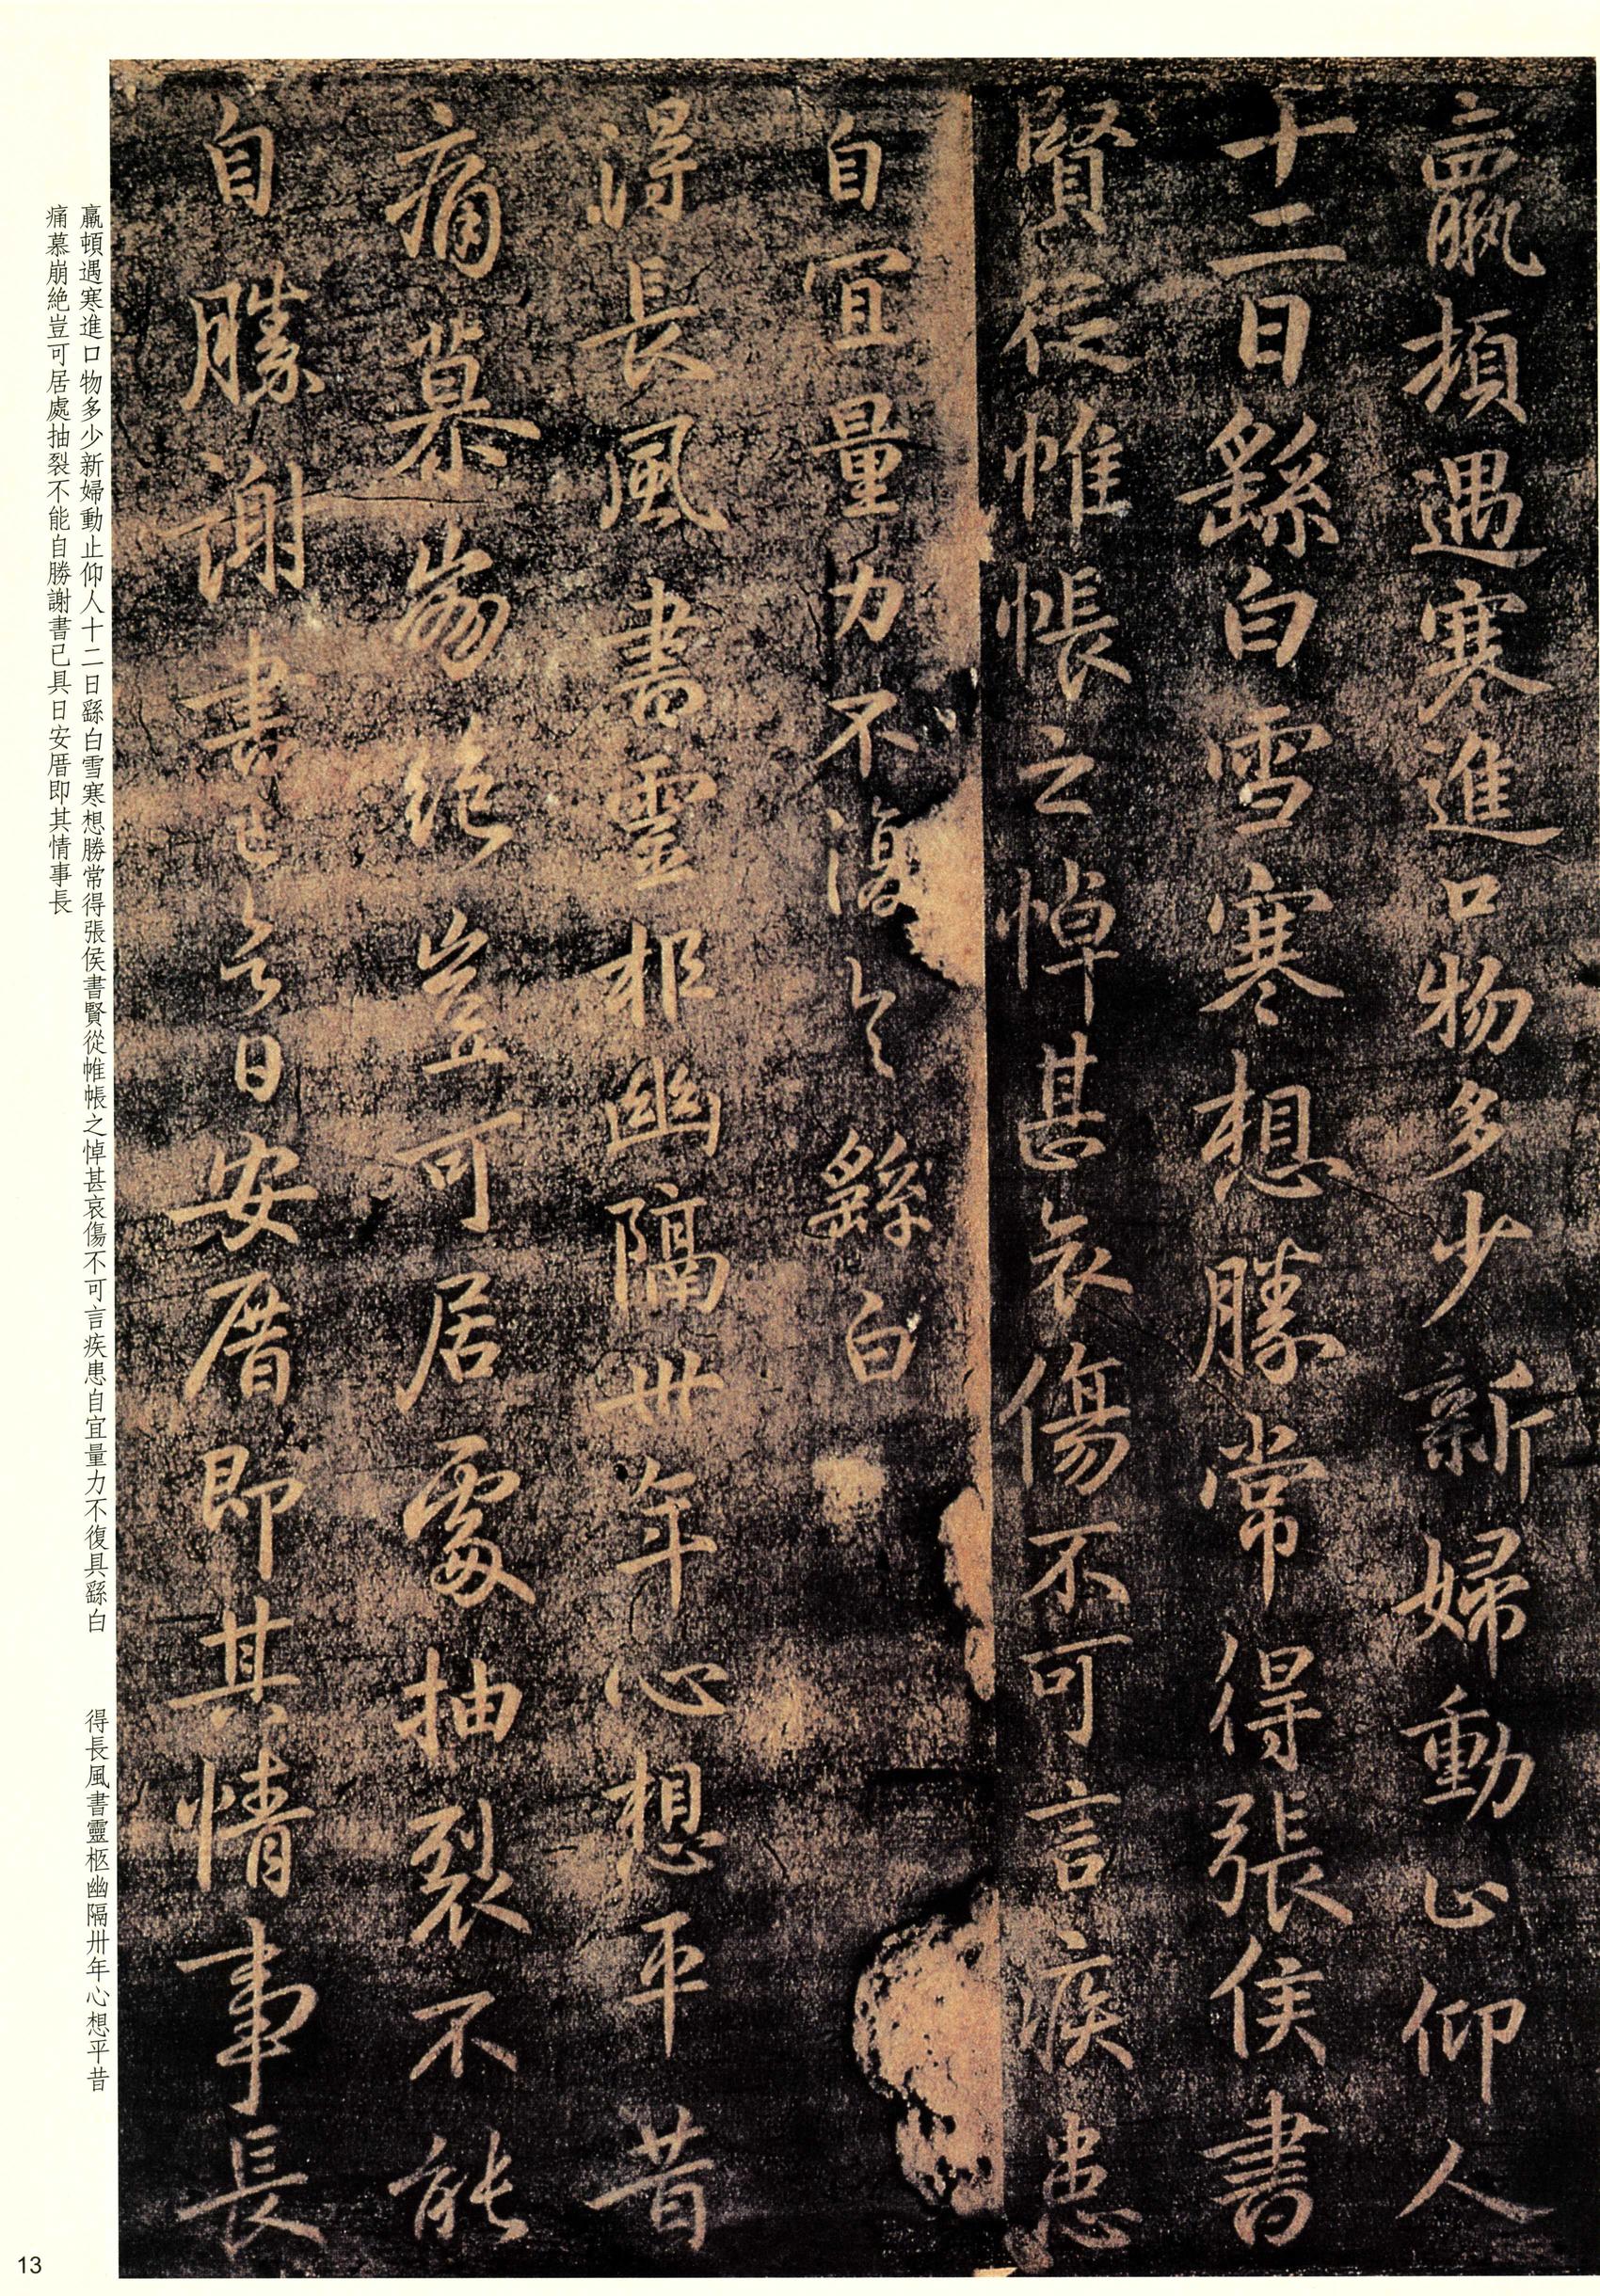 羸頓遇寒進口物多少新婦動止仰人
十二日繇白雪寒想勝常得張侯書
賢從帷帳之悼甚哀傷不可言疾患
自宜量力不復具繇白
得長風書靈柩幽隔卅年心想平昔
痛慕崩絶豈可居處抽裂不能
自勝謝書已具日安厝即其情事長
羸頓遇寒進口物多少新婦動止仰人十二日繇白雪寒想勝常得張侯書賢從帷帳之悼甚哀傷不可言疾患自宜量力不復具繇白　得長風書靈柩幽隔卅年心想平昔
痛慕崩絶豈可居處抽裂不能自勝謝書已具日安厝即其情事長
13